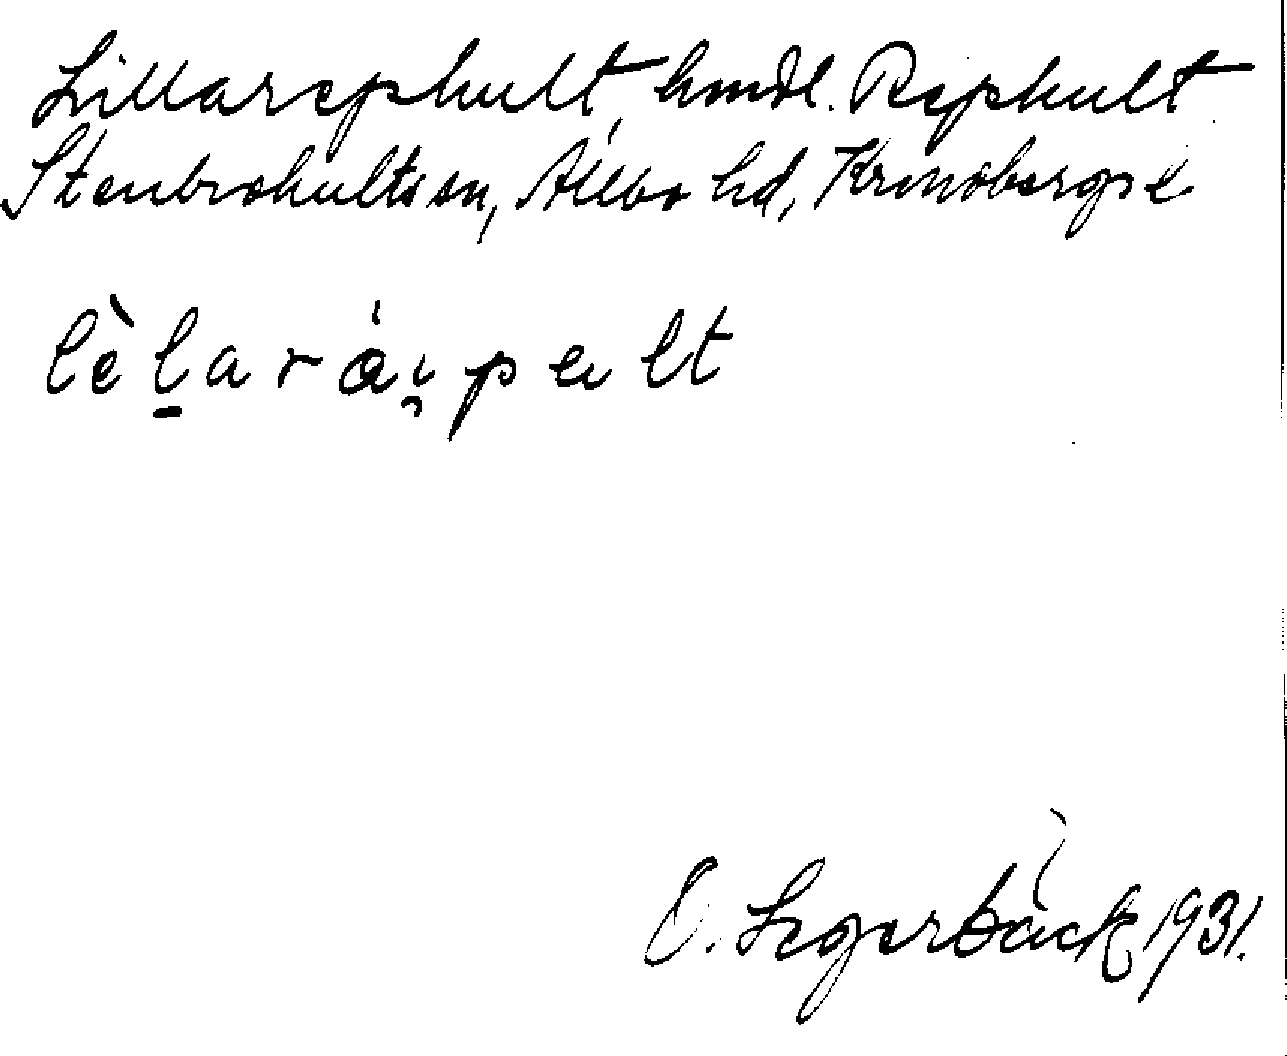 Lillarephult, hmdl. Rephult
Stenbrohults sn, Allbo hd, Kronobergs l.
lèḷarái̯pult
O. Segerbäck 1931.